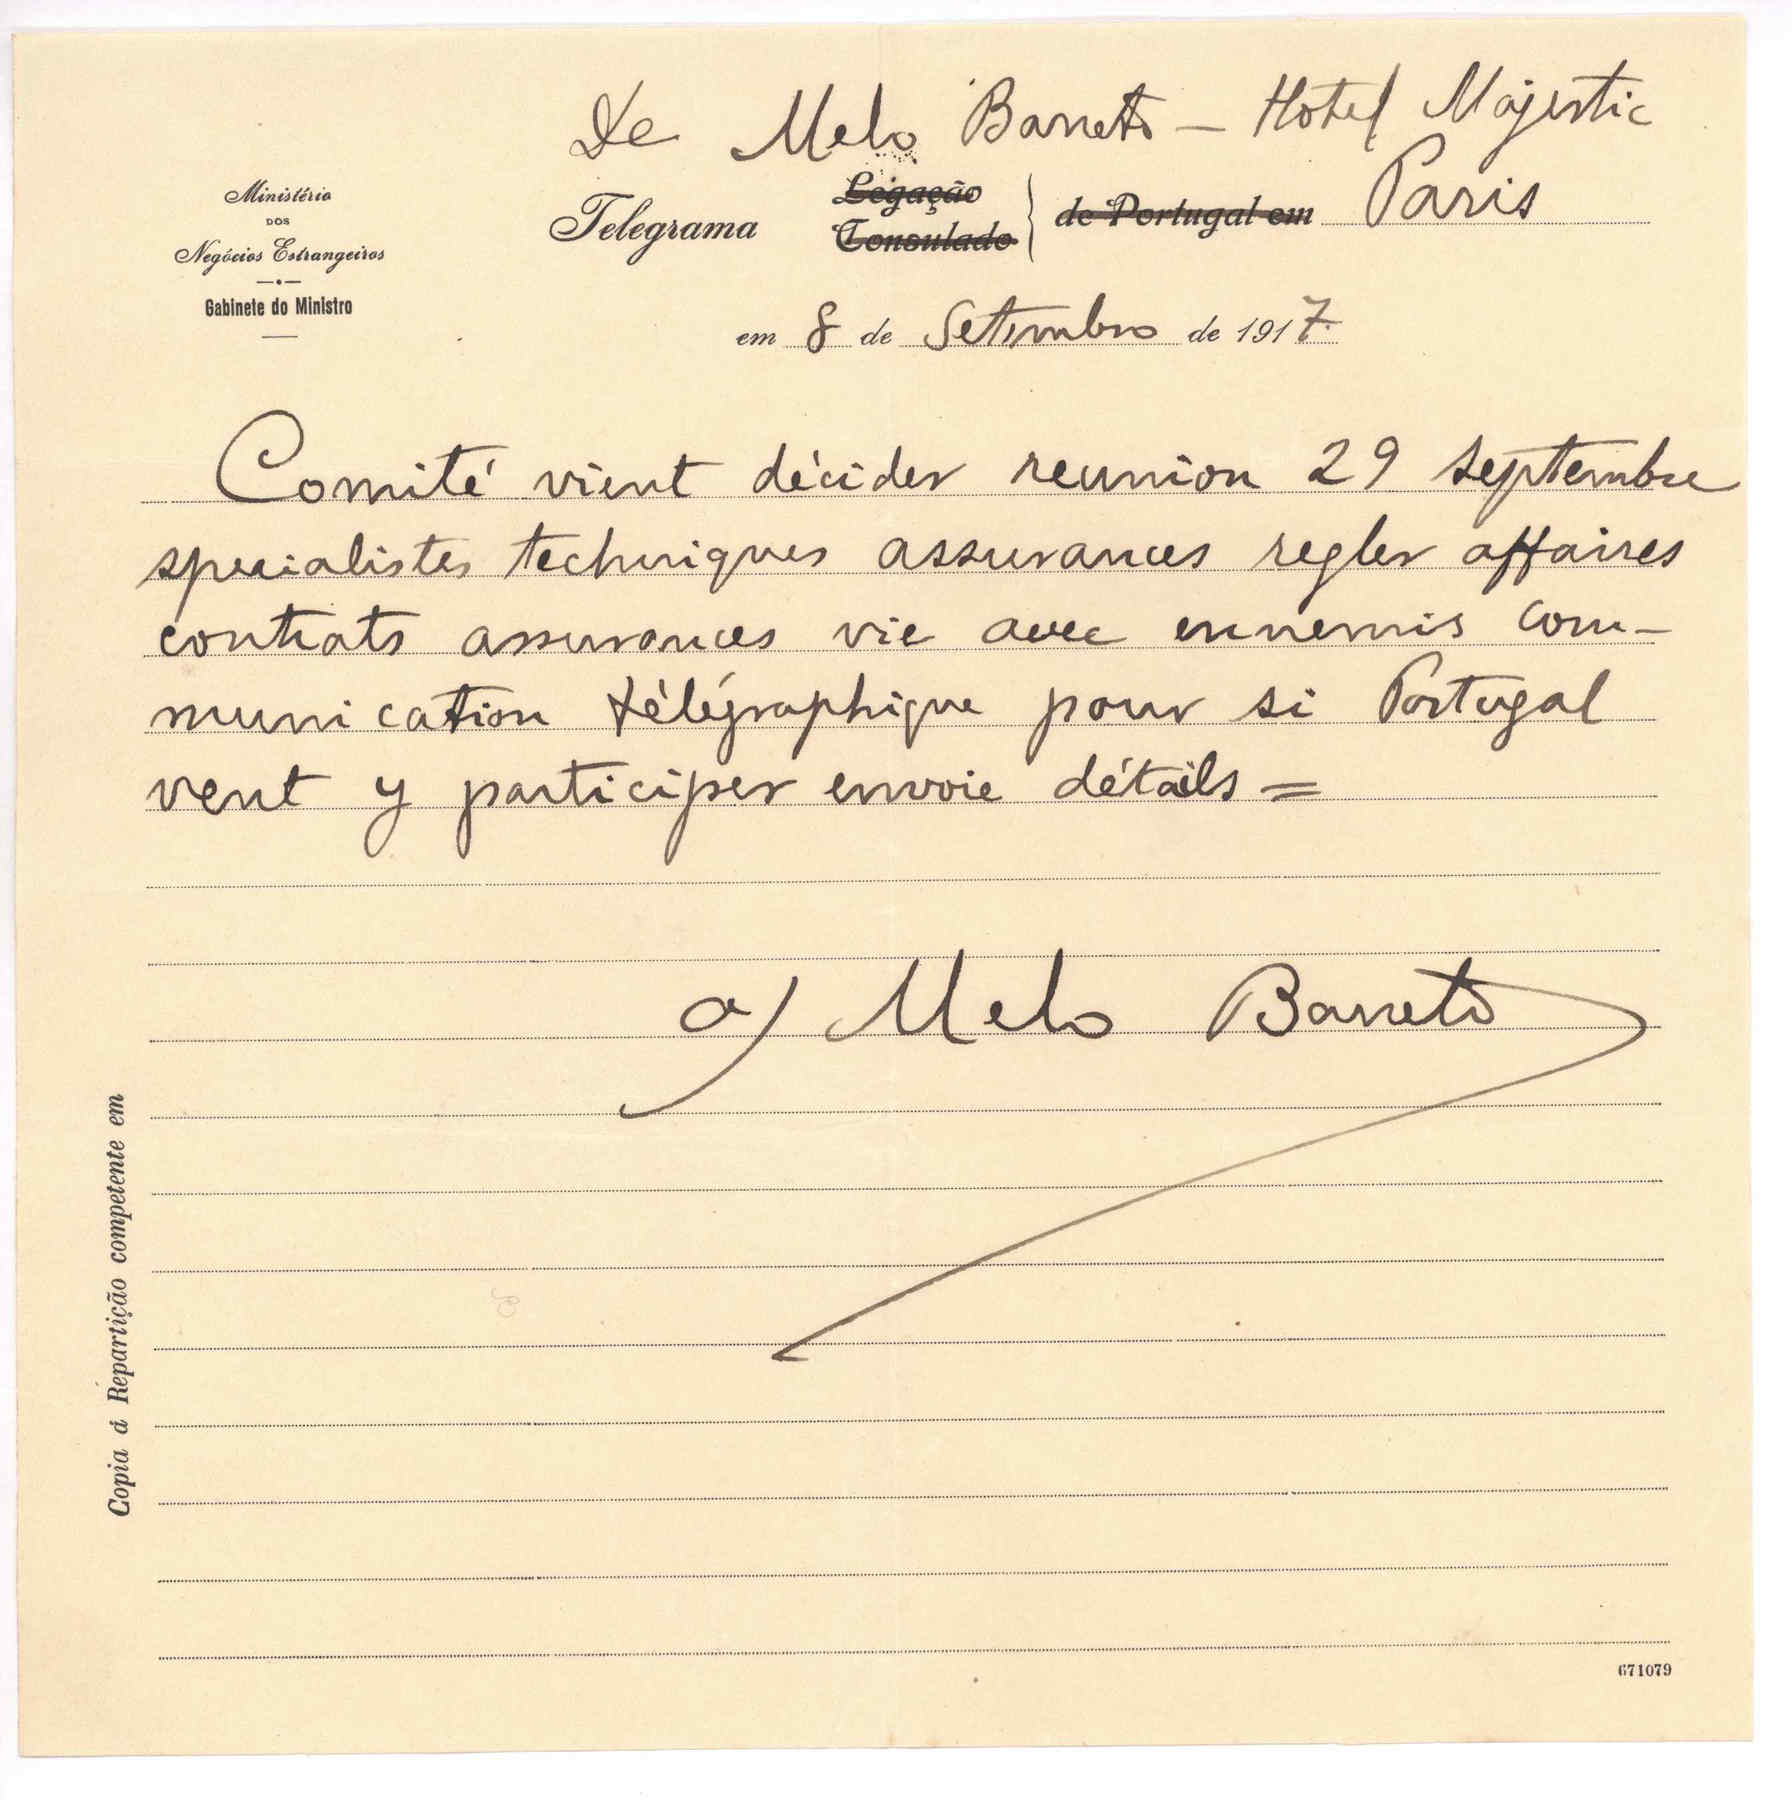 De Melo Barreto - Hotel Majestic
Ministério
DOS
Negócios Estrangeiros
Gabinete do Ministro
Telegrama Legação Consulado } de Portugal em Paris
em 8 de Setembro de 1917.
Comité vient décider reunion 29 septembre
specialistes techniques assurances regler affaires
contrats assurances vie avec ennemis com-
munication télégraphique pour si Portugal
veut y participer envoie détails =
a) Melo Barreto
Copia á Repartição competente em
671079